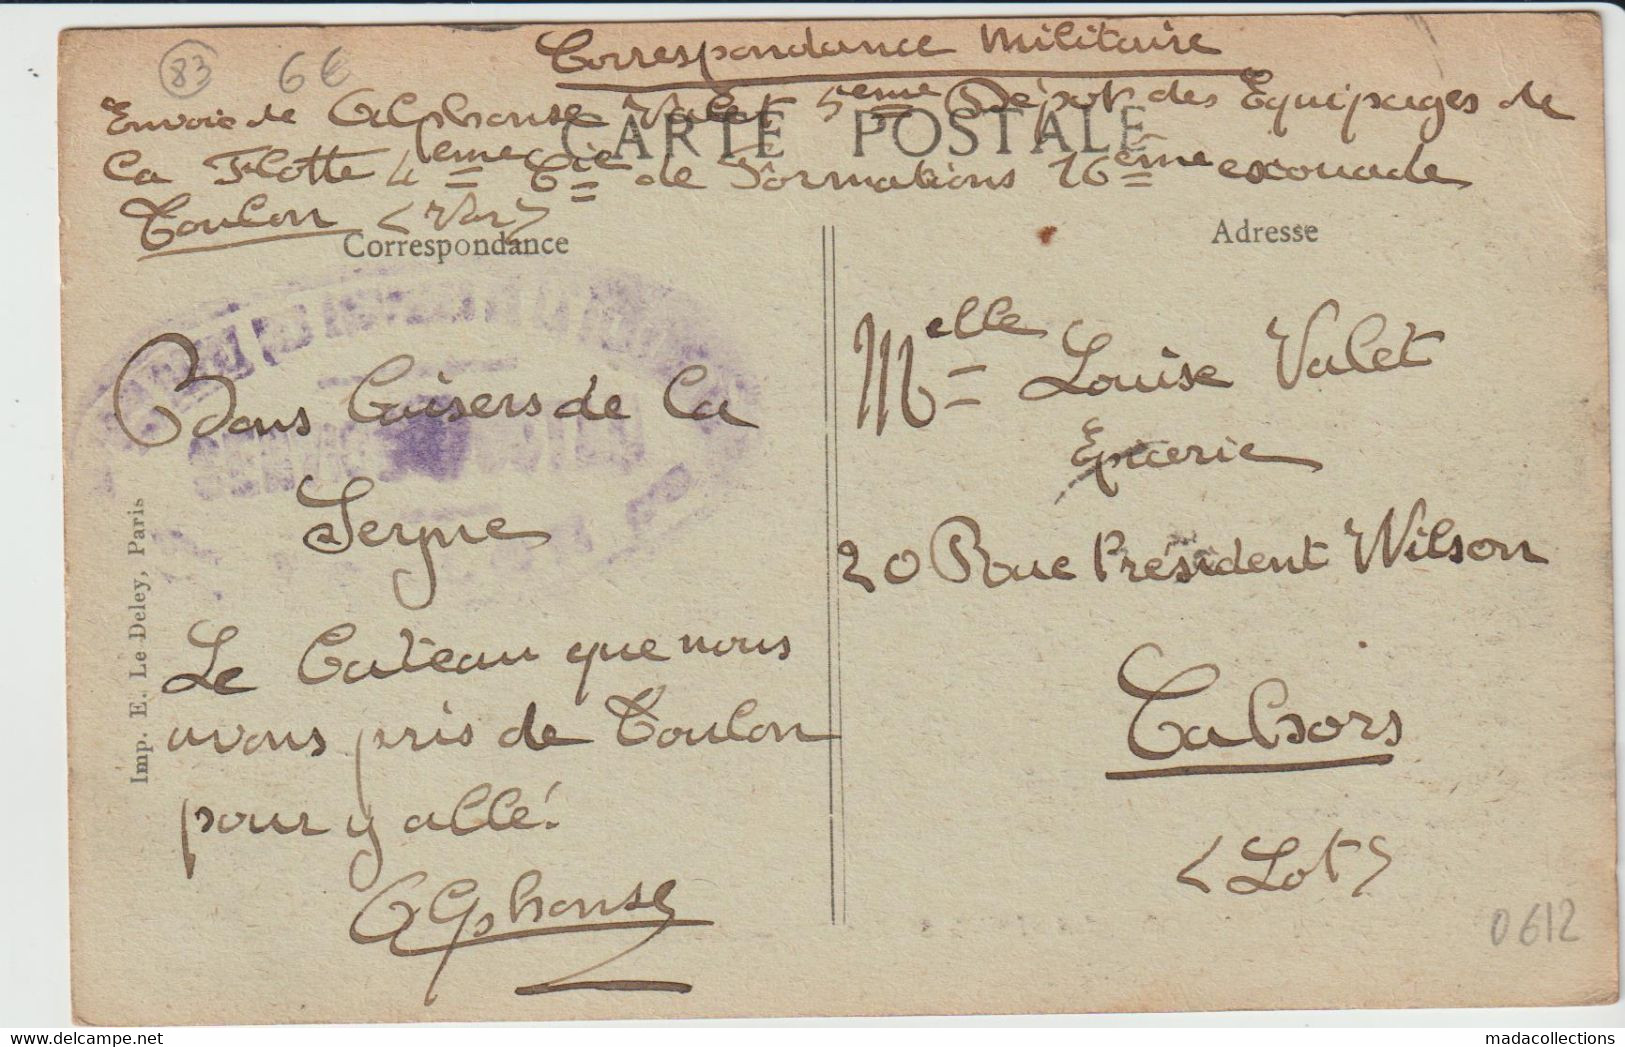 83 6€
Correspondance Militaire
Envoie de Alphonse Valet 5ème Dépot des Equipages de
CARTE POSTALE
la Flotte 4ème Cie de Formations 16ème escouade
Toulon (Var)
Correspondance
Adresse
Bons baisers de la
Seyne
Le bateau que nous
avons pris de Toulon
pour y allé!
Alphonse
Imp. E. Le Deley, Paris
Melle Louise Valet
Epicerie
20 Rue Président Wilson
Cahors
(Lot)
0612
madacollections - delcampe.net